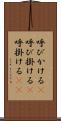 呼びかける
呼び掛ける
呼掛ける